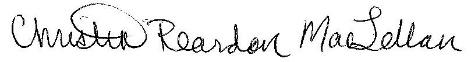 Christia Reardon MacLellan